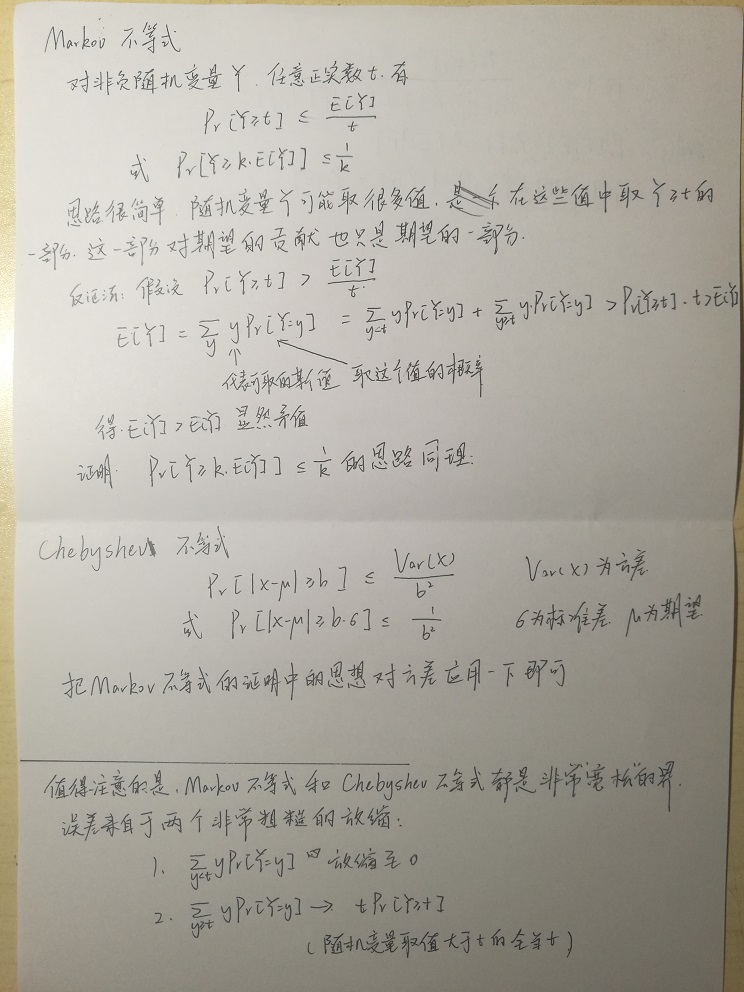 Markov 不等式
对非负随机变量 Y, 任意正实数 t. 有
Pr[Y≥t] ≤ E[Y]/t
或 Pr[Y≥k.E[Y]] ≤ 1/k
思路很简单. 随机变量Y可能取很多值. 在这些值中取 Y≥t的
一部分. 这一部分对期望的贡献也只是期望的一部分.
反证法: 假设 Pr[Y≥t] > E[Y]/t.
E[Y] = Σ_y yPr[Y=y] = Σ_{y<t} yPr[Y=y] + Σ_{y≥t} y.Pr[Y=y] > Pr[Y≥t].t > E[Y]
代表可取的某个值 取这个值的概率
得. E[Y] > E[Y] 显然矛盾
证明. Pr[Y≥k.E[Y]] ≤ 1/k 的思路同理.
Chebyshev 不等式
Pr[|X-μ|≥b] ≤ Var(X)/b² Var(X)为方差
或 Pr[|X-μ|≥b.σ] ≤ 1/b² σ为标准差 μ为期望
把Markov不等式的证明中的思想对方差应用一下即可
值得注意的是, Markov 不等式 和 Chebyshev 不等式 都是非常"宽松"的界.
误差来自于两个非常粗糙的放缩:
1. Σ_{y<t} yPr[Y=y] 放缩至 0
2. Σ_{y≥t} yPr[Y=y] → tPr[Y≥t]
(随机变量取值大于t的全当t)